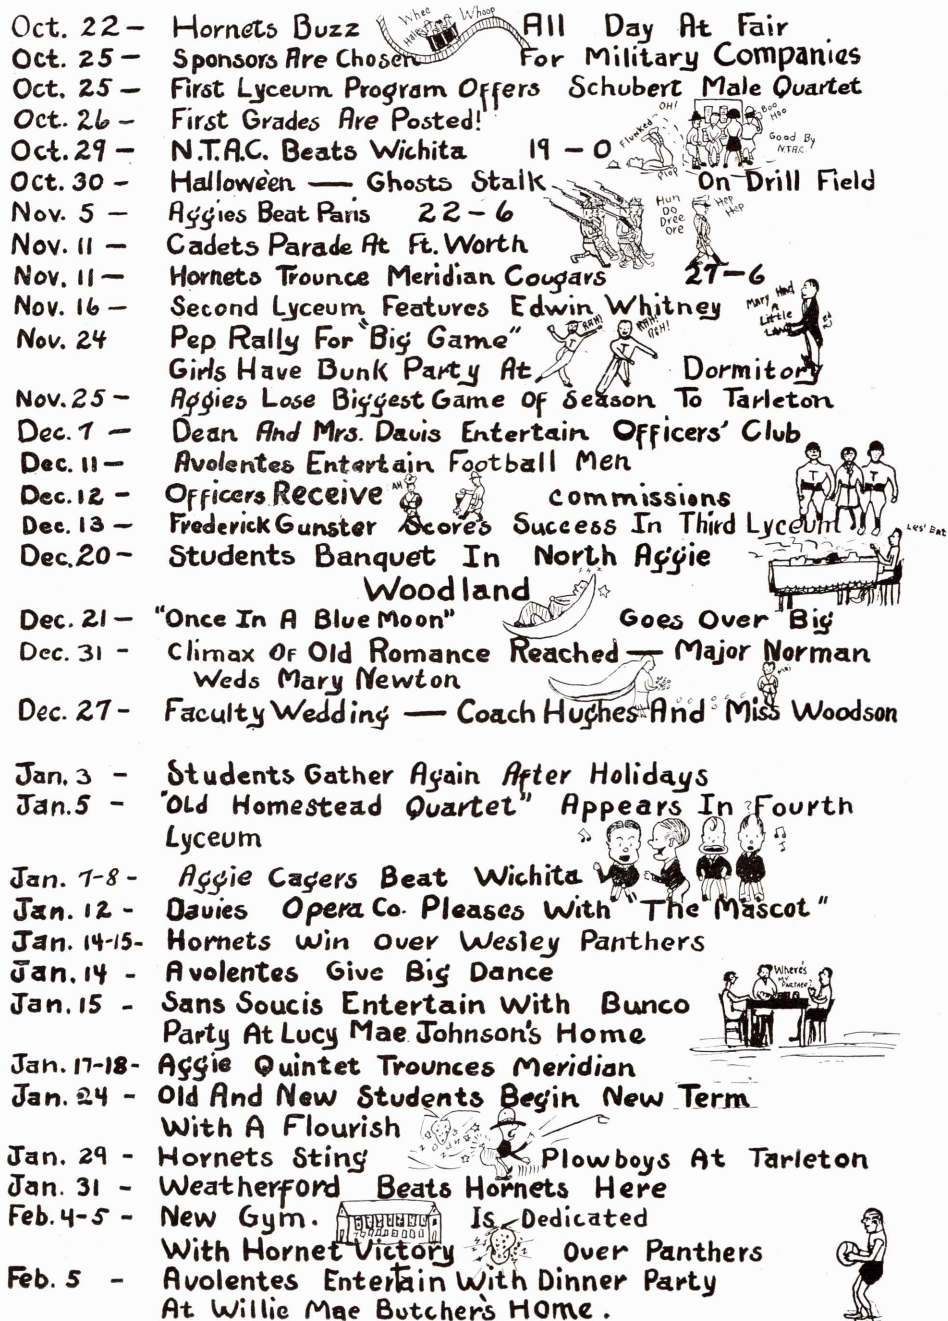 Oct. 22 – Hornets Buzz Whee Hale Whoop All Day At Fair
Oct. 25 – Sponsors Are Chosen For Military Companies
Oct. 25 – First Lyceum Program Offers Schubert Male Quartet
Oct. 26 – First Grades Are Posted!
Flunked OH! Plop Boo Hoo Good By N.T.A.C.
Oct. 29 – N.T.A.C. Beats Wichita 19 – 0
Oct. 30 – Halloween — Ghosts Stalk On Drill Field
Nov. 5 – Aggies Beat Paris 22-6
Hun Do Dree Ore Hep Hep
Nov. 11 – Cadets Parade At Ft. Worth
Nov. 11 – Hornets Trounce Meridian Cougars 27–6
Nov. 16 – Second Lyceum Features Edwin Whitney
Mary Had A Little Lamb
Nov. 24 Pep Rally For "Big Game"
RAH! RAH! RAH!
Girls Have Bunk Party At Dormitory
Nov. 25 – Aggies Lose Biggest Game Of Season To Tarleton
Dec. 7 – Dean And Mrs. Davis Entertain Officers' Club
Dec. 11 – Avolentes Entertain Football Men
T T
Dec. 12 – Officers Receive AH commissions
Dec. 13 – Frederick Gunster Scores Success In Third Lyceum
Les' Eat
Dec. 20 – Students Banquet In North Aggie
Woodland
Dec. 21 – "Once In A Blue Moon" Goes Over Big
Dec. 31 – Climax Of Old Romance Reached — Major Norman
Weds Mary Newton
Dec. 27 – Faculty Wedding — Coach Hughes And Miss Woodson
Jan. 3 – Students Gather Again After Holidays
Jan. 5 – "Old Homestead Quartet" Appears In Fourth
Lyceum
Jan. 7-8 – Aggie Cagers Beat Wichita
Jan. 12 – Davies Opera Co. Pleases With "The Mascot"
Jan. 14-15 – Hornets Win Over Wesley Panthers
Jan. 14 – Avolentes Give Big Dance
Where's My Partner?
Jan. 15 – Sans Soucis Entertain With Bunco
Party At Lucy Mae Johnson's Home
Jan. 17-18 – Aggie Quintet Trounces Meridian
Jan. 24 – Old And New Students Begin New Term
With A Flourish
Jan. 29 – Hornets Sting Plowboys At Tarleton
Jan. 31 – Weatherford Beats Hornets Here
Feb. 4-5 – New Gym. Is Dedicated
With Hornet Victory Over Panthers
Feb. 5 – Avolentes Entertain With Dinner Party
At Willie Mae Butcher's Home.